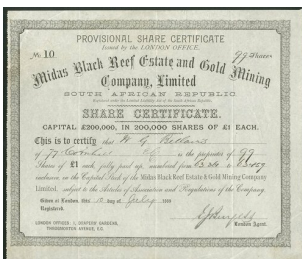 PROVISIONAL SHARE CERTIFICATE
Issued by the LONDON OFFICE.
No. 10 99 Shares
Midas Black Reef Estate and Gold Mining
Company, Limited
SOUTH AFRICAN REPUBLIC
SHARE CERTIFICATE.
CAPITAL £200,000, IN 200,000 SHARES OF £1 EACH.
This is to certify that
of 77 Cornhill is the proprietor of 99
Shares of £1 each, fully paid up, numbered from to
inclusive in the Capital Stock of the Midas Black Reef Estate & Gold Mining Company
Limited, subject to the Articles of Association and Regulations of the Company.
Given at London this 10 day of July 1889
Registered.
LONDON OFFICES, 1, DRAPERS GARDENS,
THROGMORTON AVENUE, E.C.
London Agent.